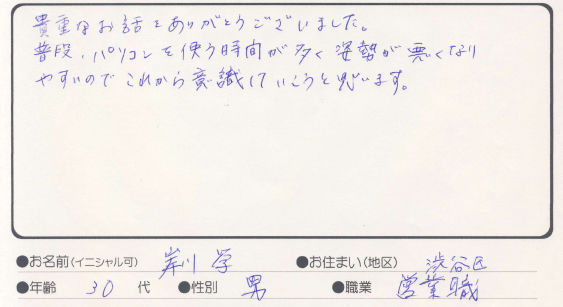 貴重なお話をありがとうございました。
普段、パソコンを使う時間が多く姿勢が悪くなり
やすいのでこれから意識していこうと思います。
●お名前(イニシャル可) 岸川 学 ●お住まい(地区) 渋谷区
●年齢 30 代 ●性別 男 ●職業 営業職